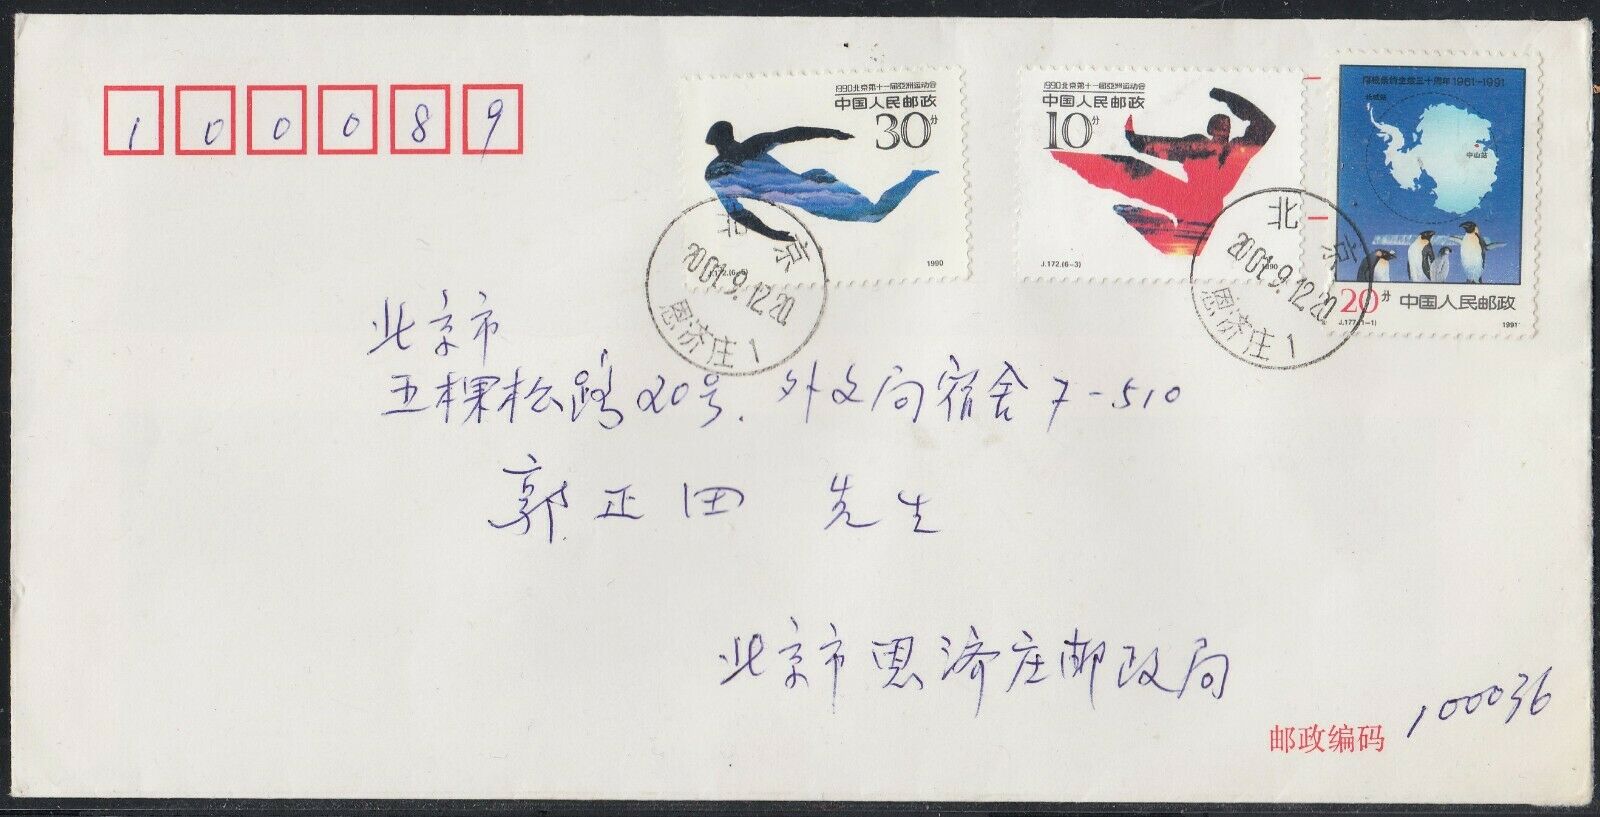 100089
1990北京第十一届亚洲运动会
中国人民邮政
30分
J.172.(6-6)
1990
1990北京第十一届亚洲运动会
中国人民邮政
10分
J.172.(6-3)
1990
南极条约生效三十周年 1961-1991
长城站
中山站
20分 中国人民邮政
J.177.(1-1)
1991
北京
2001.9.12.20
恩济庄1
北京
2001.9.12.20
恩济庄1
北京市
五棵松路20号.外文局宿舍7-510
郭正田 先生
北京市恩济庄邮政局
邮政编码 100036